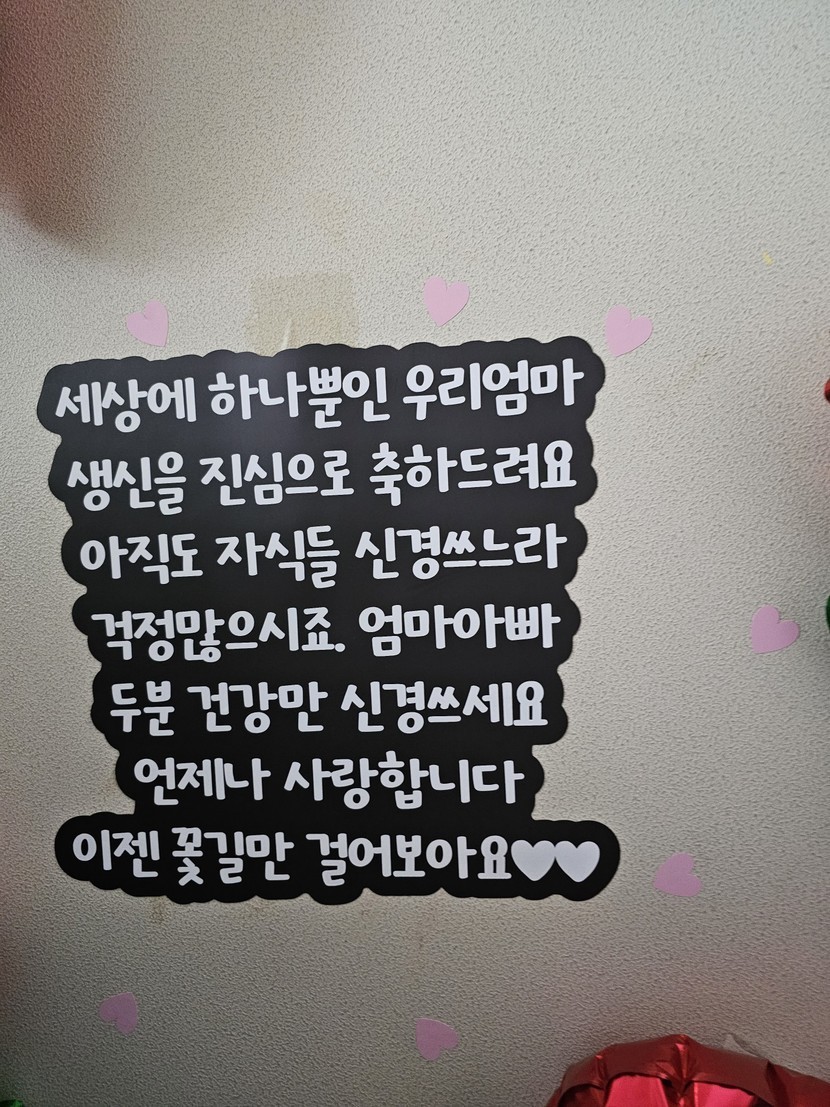 세상에 하나뿐인 우리엄마
생신을 진심으로 축하드려요
아직도 자식들 신경쓰느라
걱정많으시죠. 엄마아빠
두분 건강만 신경쓰세요
언제나 사랑합니다
이젠 꽃길만 걸어보아요♥♥